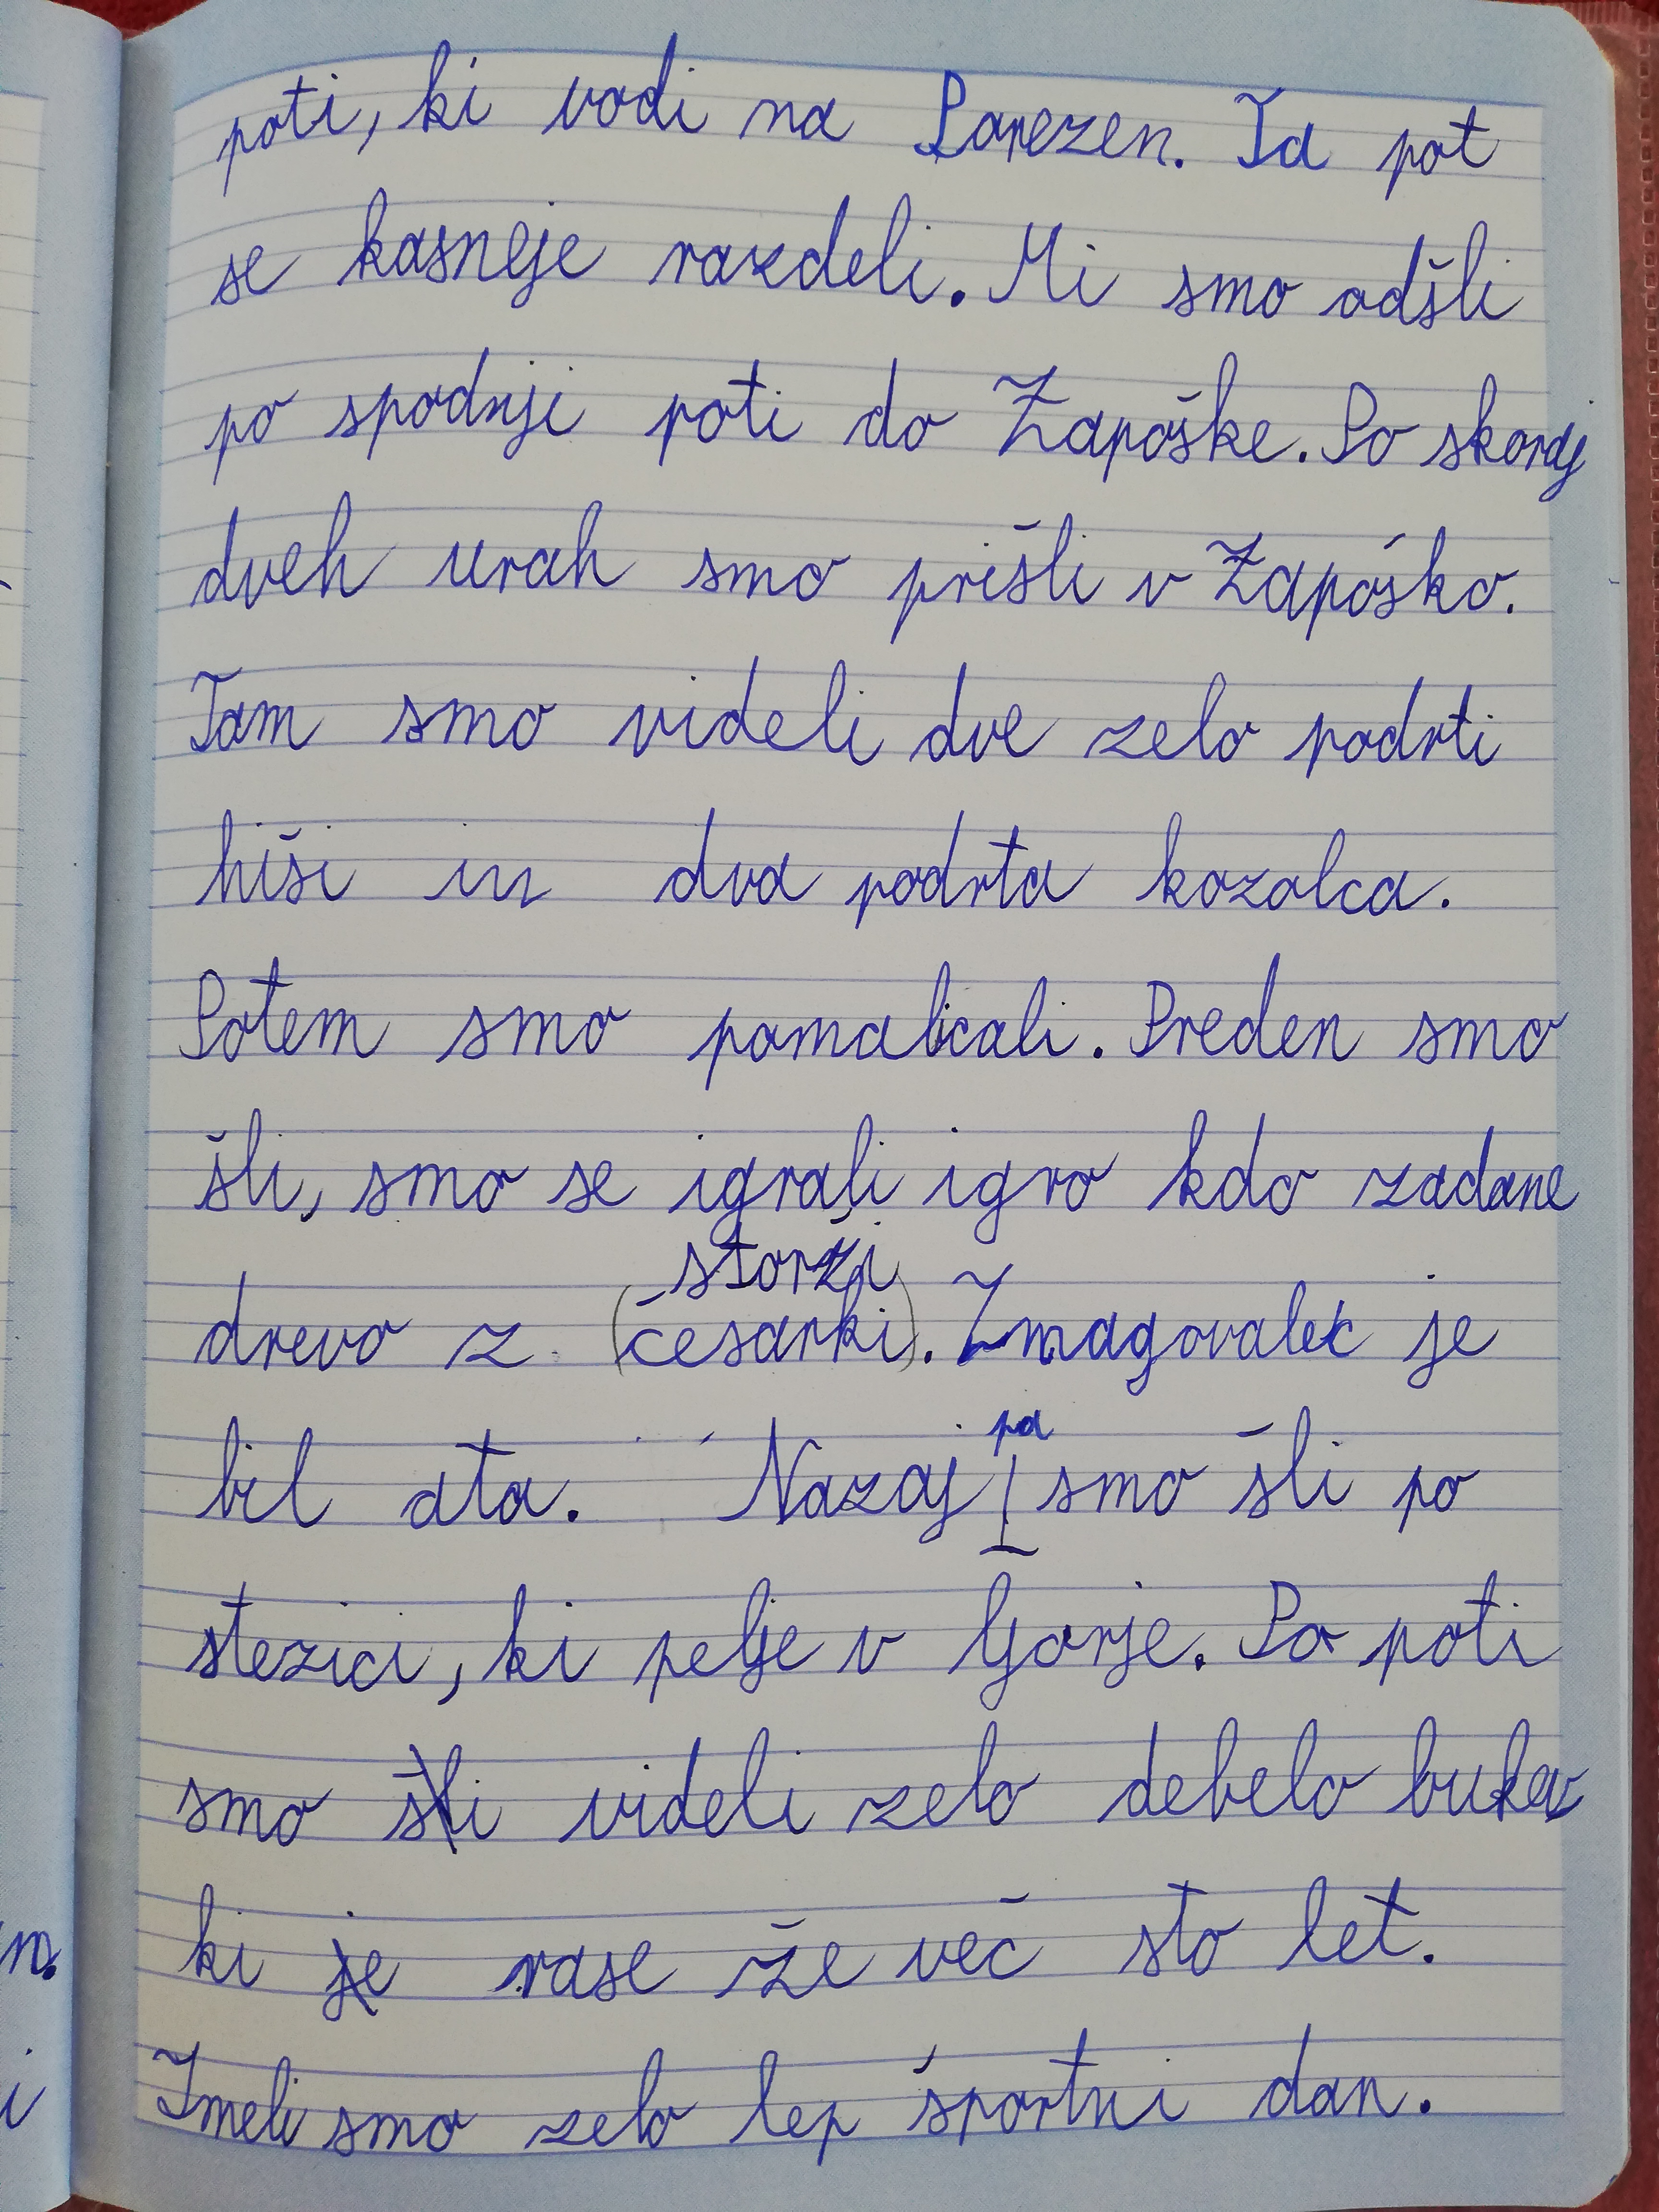 poti, ki vodi na Porezen. Ta pot
se kasneje razdeli. Mi smo odšli
po spodnji poti do Zapoške. Po skoraj
dveh urah smo prišli v Zapoško.
Tam smo videli dve zelo podrti
hiši in dva podrta kozolca.
Potem smo pomalicali. Preden smo
šli, smo se igrali igro kdo zadane
storži
drevo z (česarki). Zmagovalec je
bil ata. Nazaj pa smo šli po
stezici, ki pelje v Gorje. Po poti
smo šli videli zelo debelo bukev
ki je rase že več sto let.
Imeli smo zelo lep športni dan.
m.
i